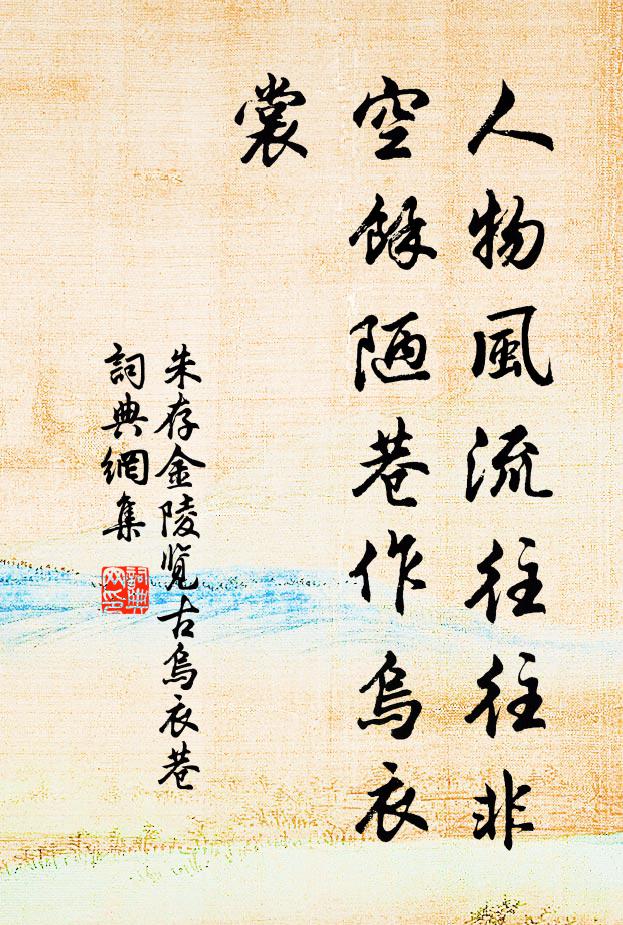 人物風流往往非
空餘陋巷作烏衣
裳
朱存金陵覽古烏衣巷
詞典網集
詞典
网印